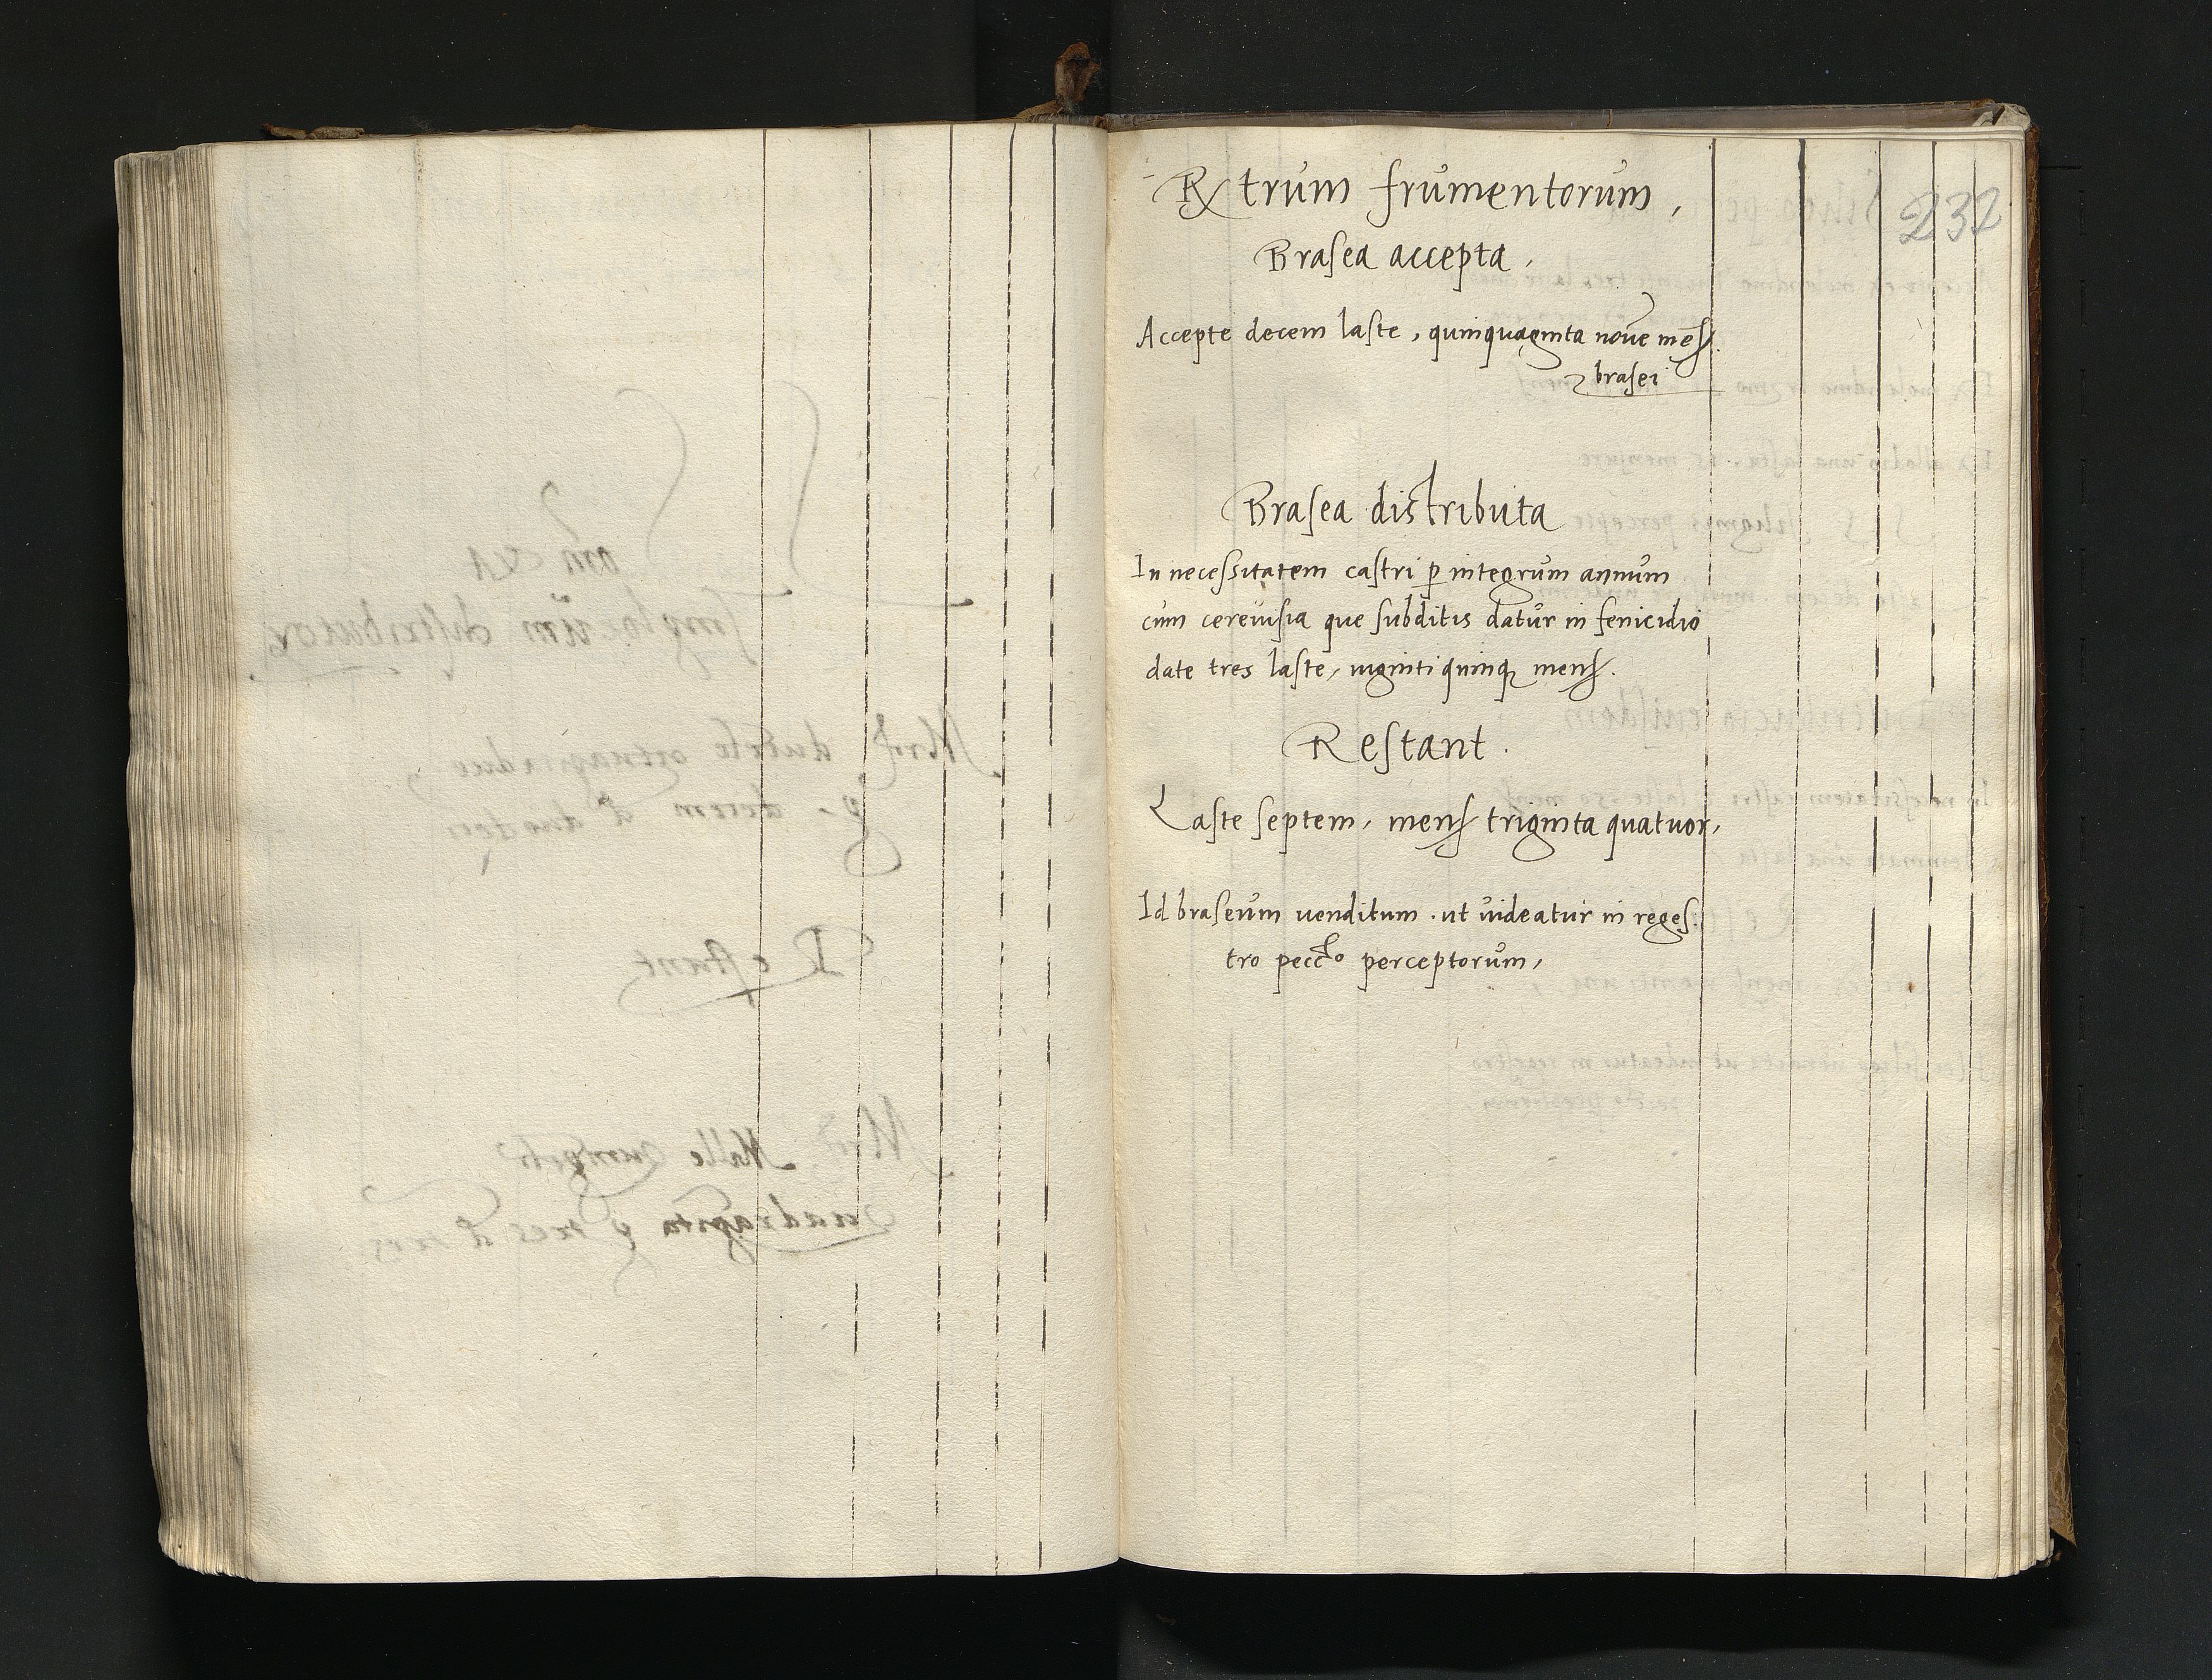 232
Rtrum frumentorum,
Brasea accepta,
Accepte decem laste, quinquaginta noue mens
brasei
Brasea distributa
In necessitatem castri p integrum annum
cum cereuisia que subditis datur in fenicidio
date tres laste, uiginti quinq mens.
Restant.
Laste septem, mens triginta quatuor,
Id braseum uenditum . ut uideatur in reges:
tro pecc͞o perceptorum,